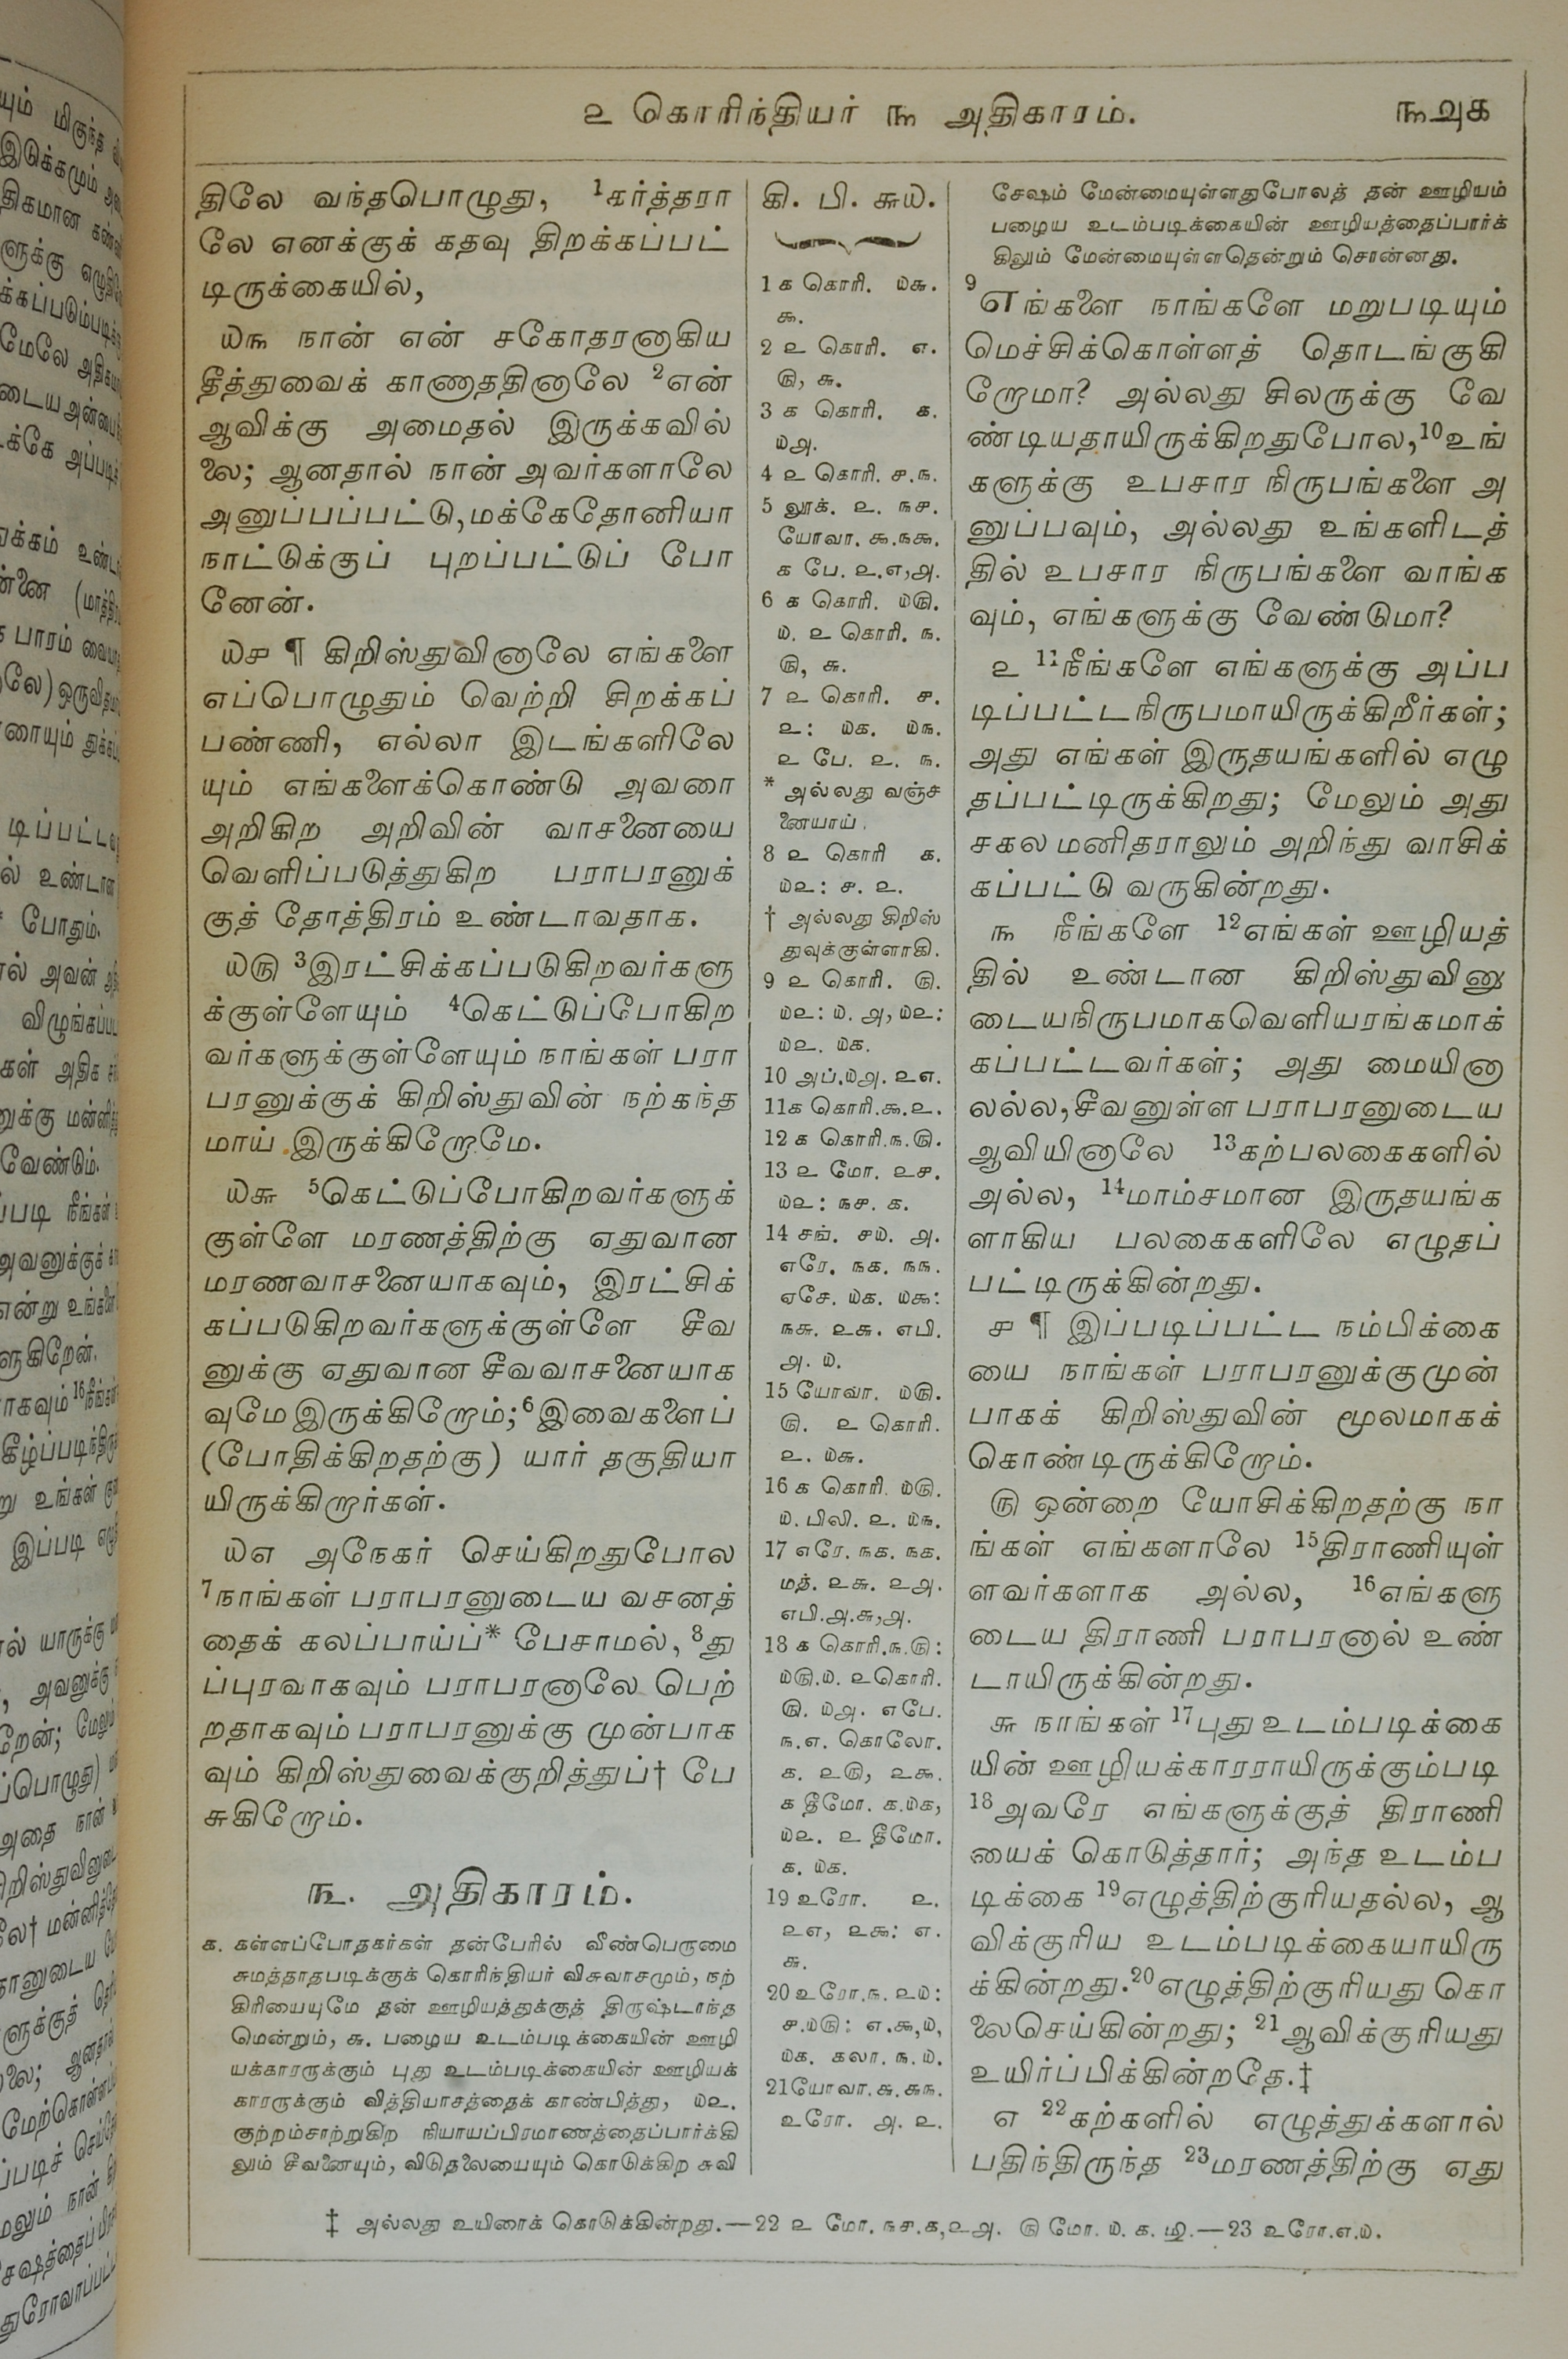 ௨ கொரிந்தியர் ௩ அதிகாரம்.
திலே வந்தபொழுது, 1கர்த்தரா
லே எனக்குக் கதவு திறக்கப்பட்
டிருக்கையில்,
௰௩ நான் என் சகோதரனாகிய
தீத்துவைக் காணாததினாலே 2என்
ஆவிக்கு அமைதல் இருக்கவில்
லை; ஆனதால் நான் அவர்களாலே
அனுப்பப்பட்டு,மக்கேதோனியா
நாட்டுக்குப் புறப்பட்டுப் போ
னேன்.
௰௪ ¶ கிறிஸ்துவினாலே எங்களை
எப்பொழுதும் வெற்றி சிறக்கப்
பண்ணி, எல்லா இடங்களிலே
யும் எங்களைக்கொண்டு அவரை
அறிகிற அறிவின் வாசனையை
வெளிப்படுத்துகிற பராபரனுக்
குத் தோத்திரம் உண்டாவதாக.
௰௫ 3இரட்சிக்கப்படுகிறவர்களு
க்குள்ளேயும் 4கெட்டுப்போகிற
வர்களுக்குள்ளேயும் நாங்கள் பரா
பரனுக்குக் கிறிஸ்துவின் நற்கந்த
மாய் இருக்கிறோமே.
௰௬ 5கெட்டுப்போகிறவர்களுக்
குள்ளே மரணத்திற்கு ஏதுவான
மரணவாசனையாகவும், இரட்சிக்
கப்படுகிறவர்களுக்குள்ளே சீவ
னுக்கு ஏதுவான சீவவாசனையாக
வுமே இருக்கிறோம்;6இவைகளைப்
(போதிக்கிறதற்கு) யார் தகுதியா
யிருக்கிறார்கள்.
௰௭ அநேகர் செய்கிறதுபோல
7நாங்கள் பராபரனுடைய வசனத்
தைக் கலப்பாய்ப்* பேசாமல், 8து
ப்புரவாகவும் பராபரனாலே பெற்
றதாகவும் பராபரனுக்கு முன்பாக
வும் கிறிஸ்துவைக்குறித்துப்† பே
சுகிறோம்.
௩. அதிகாரம்.
க. கள்ளப்போதகர்கள் தன்பேரில் வீண்பெருமை
சுமத்தாதபடிக்குக் கொரிந்தியர் விசுவாசமும், நற்
கிரியையுமே தன் ஊழியத்துக்குத் திருஷ்டாந்த
மென்றும், ௬. பழைய உடம்படிக்கையின் ஊழி
யக்காரருக்கும் புது உடம்படிக்கையின் ஊழியக்
காரருக்கும் வித்தியாசத்தைக் காண்பித்து, ௰௨.
குற்றம்சாற்றுகிற நியாயப்பிரமாணத்தைப்பார்க்கி
லும் சீவனையும், விடுதலையையும் கொடுக்கிற சுவி
கி. பி. ௬௰.
1 ௧ கொரி. ௰௬.
௯.
2 ௨ கொரி. ௭.
௫, ௬.
3 ௧ கொரி. ௧.
௰௮.
4 ௨ கொரி. ௪.௩.
5 லூக். ௨. ௩௪.
யோவா. ௯.௩௯.
௧ பே. ௨.௭,௮.
6 ௧ கொரி. ௰௫.
௰. ௨ கொரி. ௩.
௫, ௬.
7 ௨ கொரி. ௪.
௨: ௰௧. ௰௩.
௨ பே. ௨. ௩.
* அல்லது வஞ்ச
னையாய்.
8 ௨ கொரி ௧.
௰௨: ௪. ௨.
† அல்லது கிறிஸ்
துவுக்குள்ளாகி.
9 ௨ கொரி. ௫.
௰௨: ௰. ௮, ௰௨:
௰௨. ௰௧.
10 அப்.௰௮. ௨௭.
11௧ கொரி.௯.௨.
12 ௧ கொரி.௩.௫.
13 ௨ மோ. ௨௪.
௰௨: ௩௪. ௧.
14 சங். ௪௰. ௮.
எரே. ௩௧. ௩௩.
ஏசே. ௰௧. ௰௯:
௩௬. ௨௬. எபி.
௮. ௰.
15 யோவா. ௰௫.
௫. ௨ கொரி.
௨. ௰௬.
16 ௧ கொரி. ௰௫.
௰. பிலி. ௨. ௰௩.
17 எரே. ௩௧. ௩௧.
மத். ௨௬. ௨௮.
எபி.௮.௬,௮.
18 ௧ கொரி.௩.௫:
௰௫.௰. ௨கொரி.
௫. ௰௮. எபே.
௩.௭. கொலோ.
௧. ௨௫, ௨௯.
௧ தீமோ. ௧.௰௧,
௰௨. ௨ தீமோ.
௧. ௰௧.
19 உரோ. ௨.
௨௭, ௨௯: ௭.
௬.
20 உரோ.௩. ௨௰:
௪.௰௫: ௭.௯,௰,
௰௧. கலா. ௩.௰.
21யோவா.௬.௬௩.
உரோ. ௮. ௨.
சேஷம் மேன்மையுள்ளதுபோலத் தன் ஊழியம்
பழைய உடம்படிக்கையின் ஊழியத்தைப்பார்க்
கிலும் மேன்மையுள்ளதென்றும் சொன்னது.
9எங்களை நாங்களே மறுபடியும்
மெச்சிக்கொள்ளத் தொடங்குகி
றோமா? அல்லது சிலருக்கு வே
ண்டியதாயிருக்கிறதுபோல,10உங்
களுக்கு உபசார நிருபங்களை அ
னுப்பவும், அல்லது உங்களிடத்
தில் உபசார நிருபங்களை வாங்க
வும், எங்களுக்கு வேண்டுமா?
௨ 11நீங்களே எங்களுக்கு அப்ப
டிப்பட்டநிருபமாயிருக்கிறீர்கள்;
அது எங்கள் இருதயங்களில் எழு
தப்பட்டிருக்கிறது; மேலும் அது
சகல மனிதராலும் அறிந்து வாசிக்
கப்பட்டு வருகின்றது.
௩ நீங்களே 12எங்கள் ஊழியத்
தில் உண்டான கிறிஸ்துவினு
டையநிருபமாகவெளியரங்கமாக்
கப்பட்டவர்கள்; அது மையினா
லல்ல,சீவனுள்ள பராபரனுடைய
ஆவியினாலே 13கற்பலகைகளில்
அல்ல, 14மாம்சமான இருதயங்க
ளாகிய பலகைகளிலே எழுதப்
பட்டிருக்கின்றது.
௪ ¶ இப்படிப்பட்ட நம்பிக்கை
யை நாங்கள் பராபரனுக்குமுன்
பாகக் கிறிஸ்துவின் மூலமாகக்
கொண்டிருக்கிறோம்.
௫ ஒன்றை யோசிக்கிறதற்கு நா
ங்கள் எங்களாலே 15திராணியுள்
ளவர்களாக அல்ல, 16எங்களு
டைய திராணி பராபரனால் உண்
டாயிருக்கின்றது.
௬ நாங்கள் 17புது உடம்படிக்கை
யின் ஊழியக்காரராயிருக்கும்படி
18அவரே எங்களுக்குத் திராணி
யைக் கொடுத்தார்; அந்த உடம்ப
டிக்கை 19எழுத்திற்குரியதல்ல, ஆ
விக்குரிய உடம்படிக்கையாயிரு
க்கின்றது.20எழுத்திற்குரியது கொ
லைசெய்கின்றது; 21ஆவிக்குரியது
உயிர்ப்பிக்கின்றதே.‡
௭ 22கற்களில் எழுத்துக்களால்
பதிந்திருந்த 23மரணத்திற்கு ஏது
‡ அல்லது உயிரைக் கொடுக்கின்றது.—22 ௨ மோ. ௩௪.௧,௨௮. ௫ மோ. ௰. ௧.—23 உரோ.௭.௰.